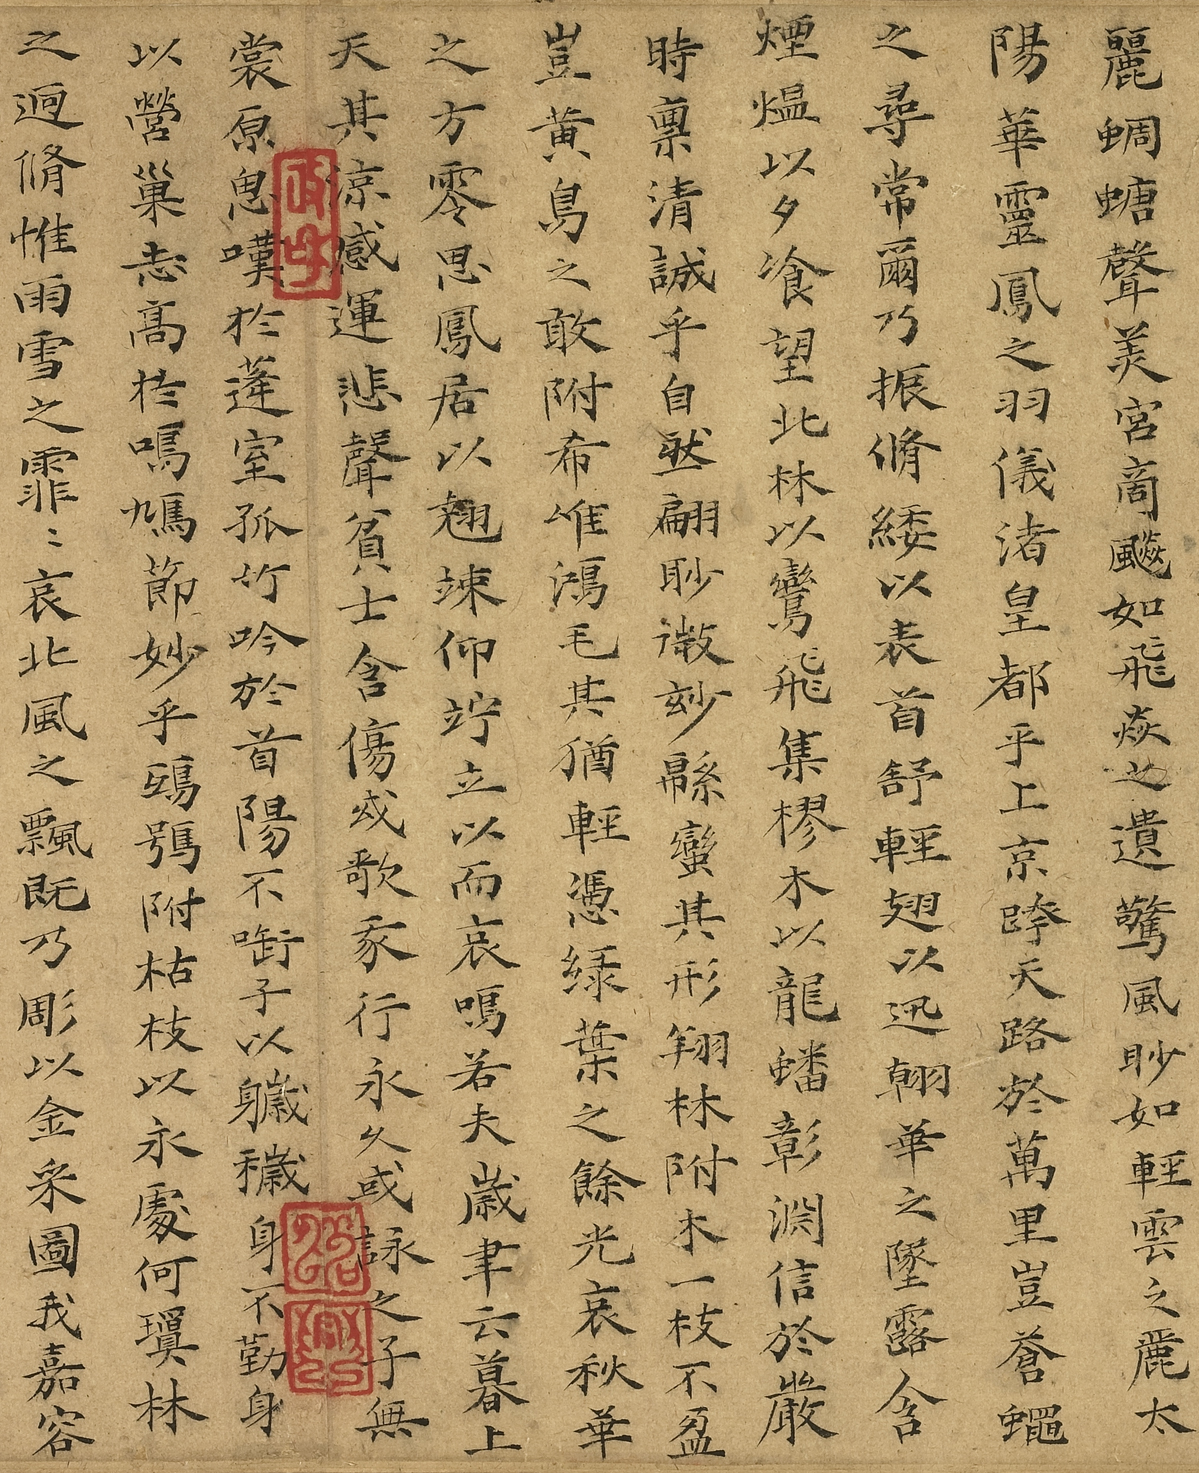 麗蜩螗聲美宮商飈如飛焱之遺驚風眇如輕雲之麗太
陽華靈鳳之羽儀渚皇都乎上京跨天路於萬里豈蒼蠅
之尋常爾乃振脩緌以表首舒輕翅以迅翰華之墜露含
煙熅以夕飡望北林以鸞飛集樛木以龍蟠彰淵信於嚴
時禀清誠乎自然翩眇微玅緜蠻其形翔林附木一枝不盈
豈黃鳥之敢附希唯鴻毛其猶輕憑綠葉之餘光哀秋華
之方零思鳳居以翹竦仰竚立以而哀鳴若夫歲聿云暮上
天其涼感運悲聲貧士含傷或歌我行永久或詠之子無
裳原思嘆於蓬室孤竹吟於首陽不銜子以穢身不勤身
以營巢志高於鳴鳩節妙乎鴟鴞附枯枝以永處何瓊林
之迥脩惟雨雪之霏〻哀北風之飄既乃彫以金采圖我嘉容